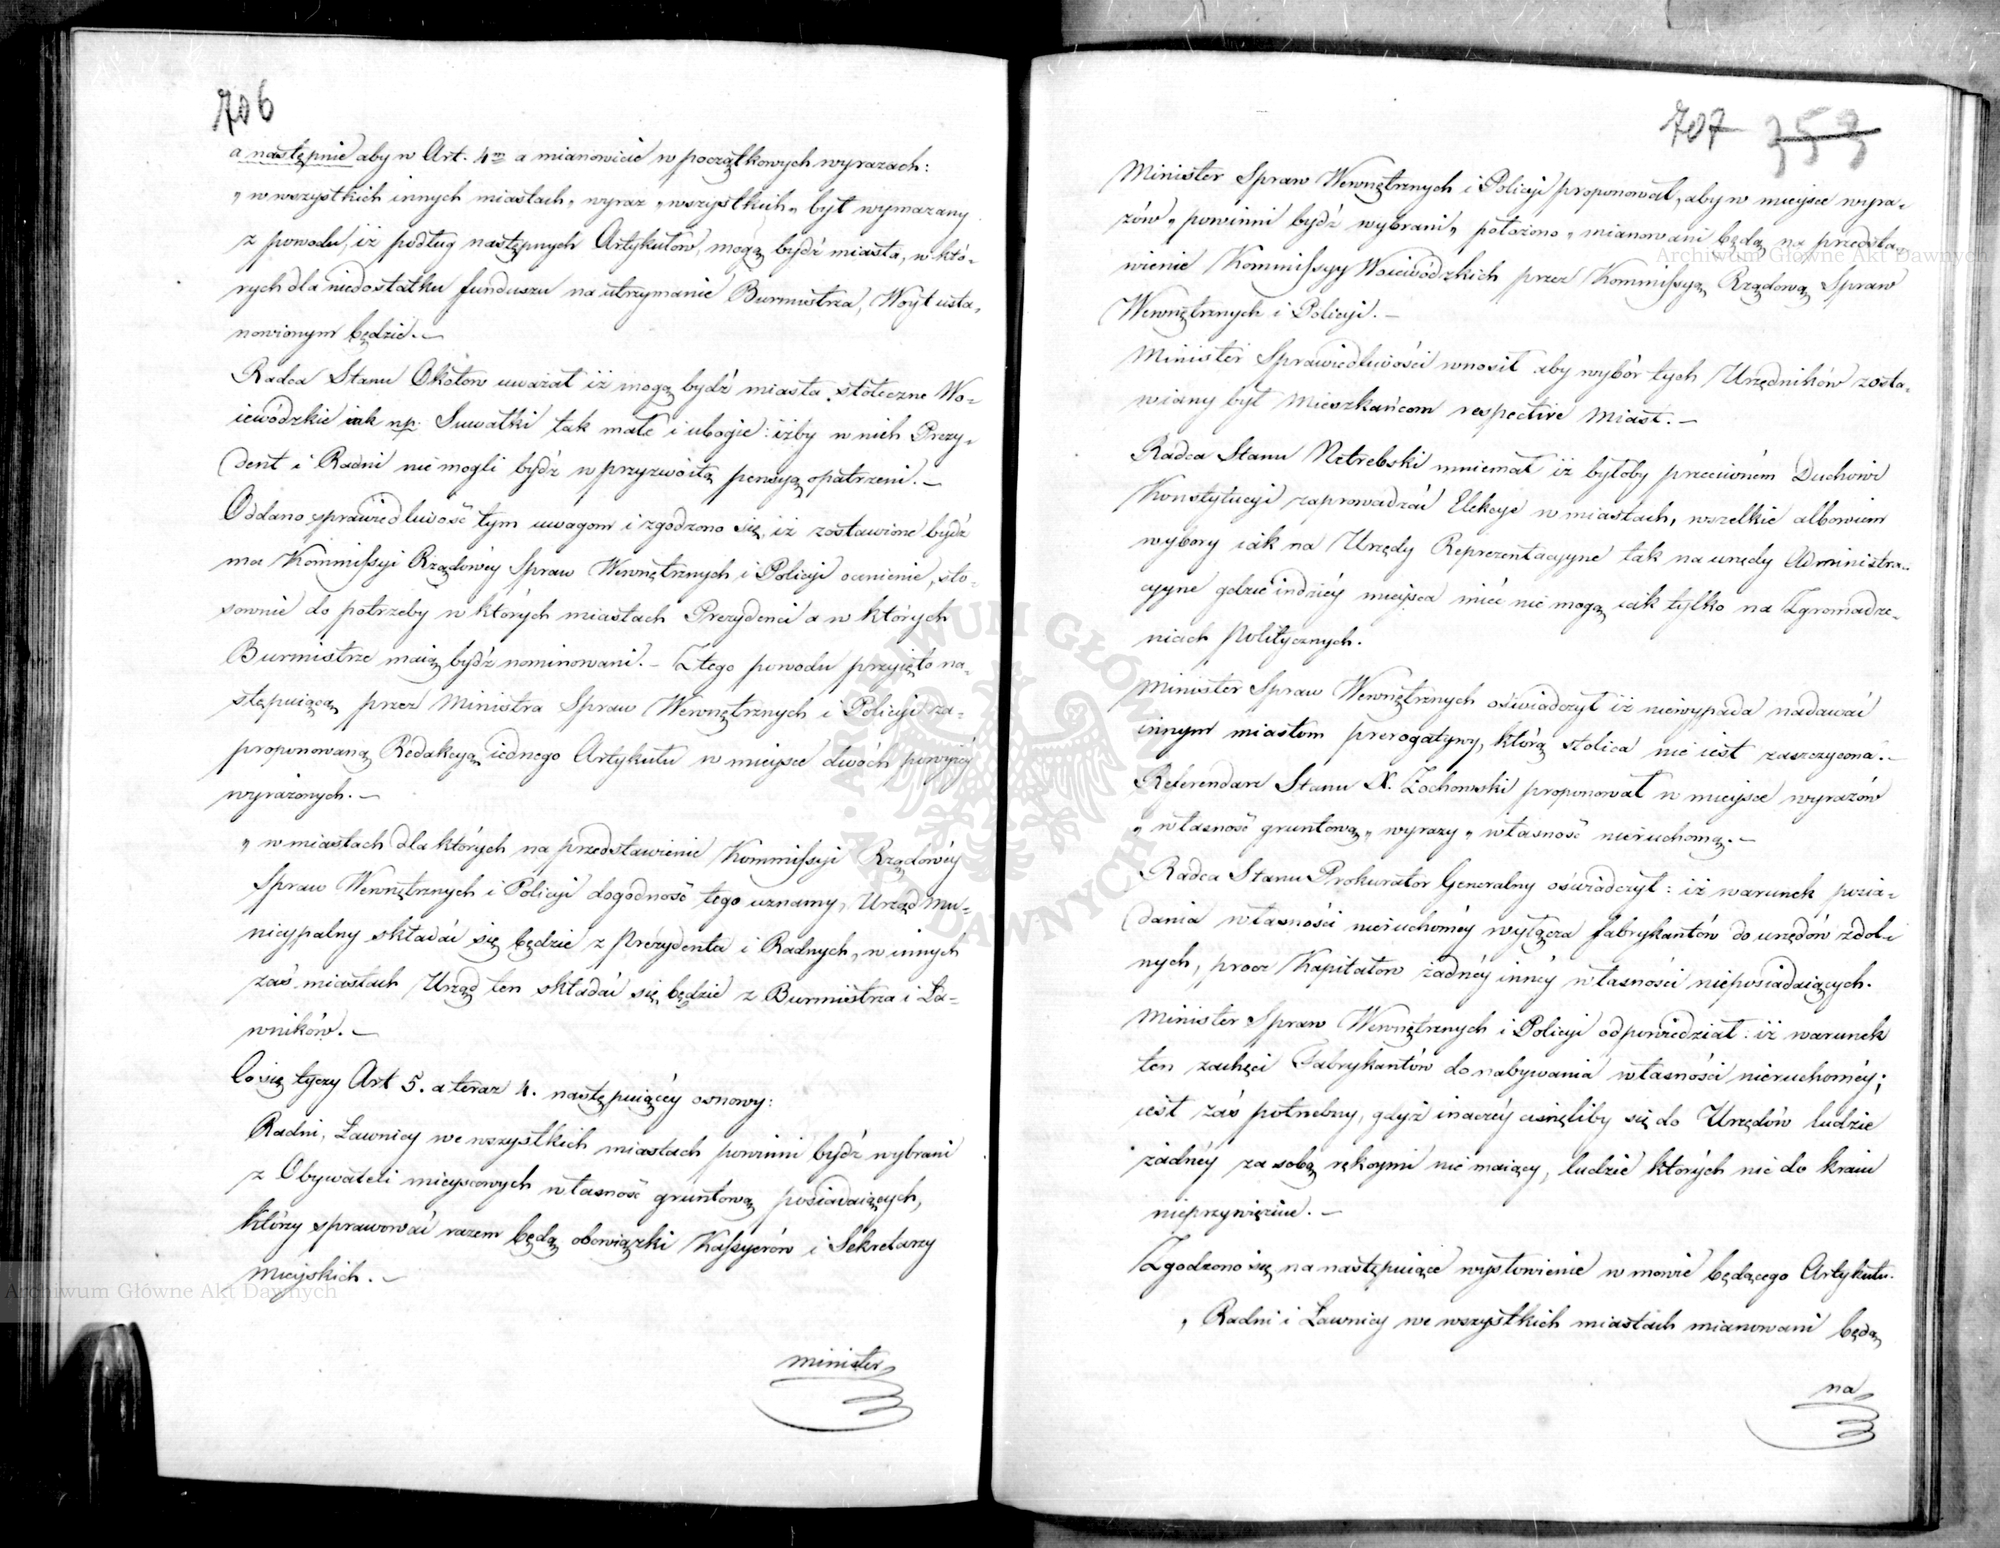 706
a następnie aby w Art. 4m a mianowicie w początkowych wyrazach:
„w wszystkich innych miastach„ wyraz „wszystkich„ był wymazany
z powodu, iż podług następnych Artykułów, mogą bydź miasta, w któ-
rych dla niedostatku funduszu na utrzymanie Burmistrza, Woyt usta-
nowionym będzie. —
Radca Stanu Okołow uważał iż mogą bydź miasta stołeczne Wo-
iewódzkie iak np. Suwałki tak małe i ubogie: iżby w nich Prezy-
dent i Radni nie mogli bydź w przyzwoitą pensyą opatrzeni. —
Oddano sprawiedliwość tym uwagom i zgodzono się, iż zostawione bydź
ma Kommissyi Rządowéy Spraw Wewnętrznych i Policyi ocenienie, sto-
sownie do potrzeby w których miastach Prezydenci a w których
Burmistrze maią bydź nominowani. — Z tego powodu przyięto na-
stępuiącą przez Ministra Spraw Wewnętrznych i Policyi za-
proponowaną Redakcyą iednego Artykułu w miejsce dwóch powyżéy
wyrażonych. —
„w miastach dla których na przedstawienie Kommissyi Rządowéy
Spraw Wewnętrznych i Policyi dogodność tego uznamy, Urząd Mu-
nicypalny składać się będzie z Prezydenta i Radnych, w innych
zaś miastach Urząd ten składać się będzie z Burmistrza i Ła-
wników. —
Co się tyczy Art 5. a teraz 4. następuiącéy osnowy:
Radni, Ławnicy we wszystkich miastach powinni bydź wybrani
z Obywateli mieyscowych własność gruntową posiadaiących,
którzy sprawować razem będą obowiązki Kassyerów i Sekretarzy
Mieyskich. —
Minister
707 353
Minister Spraw Wewnętrznych i Policyi proponował, aby w miejsce wyra-
zów „powinni bydź wybrani„ położono „mianowani będą na przedsta-
wienie Kommissyy Woiewódzkich przez Kommissyą Rządową Spraw
Wewnętrznych i Policyi. —
Minister Sprawiedliwości wnosił aby wybór tych Urzędników zosta-
wiany był Mieszkańcom respective Miast. —
Radca Stanu Netrebski mniemał iż byłoby przeciwném Duchowi
Konstytucyi zaprowadzać Elekcye w miastach, wszelkie albowiem
wybory iak na Urzędy Reprezentacyyne tak na urzędy Administra-
cyyne gdzie indziéy miejsca mieć nie mogą iak tylko na Zgromadze-
niach Politycznych.
Minister Spraw Wewnętrznych oświadczył iż niewypada nadawać
innym miastom prerogatywy, którą stolica nie iest zaszczycona. —
Referendarz Stanu X. Żochowski proponował w miejsce wyrazów
„własność gruntową„ wyrazy „własność nieruchomą. —
Radca Stanu Prokurator Generalny oświadczył: iż warunek posia-
dania własności nieruchoméy wyłącza fabrykantów do urzędów zdol-
nych, procz Kapitałow żadnéy innéy własności nieposiadaiących.
Minister Spraw Wewnętrznych i Policyi odpowiedział: iż warunek
ten zachęci Fabrykantów do nabywania własności nieruchoméy;
iest zaś potrzebny, gdyż inaczéy cisnęliby się do Urzędów ludzie
żadnéy za sobą rękoymi nie maiący, ludzie których nic do kraiu
nieprzywięzuie. —
Zgodzono się na następuiące wysłowienie w mowie będącego Artykułu.
„Radni i Ławnicy we wszystkich miastach mianowani będą
na
Archiwum Główne Akt Dawnych
Archiwum Główne Akt Dawnych
ARCHIWUM GŁÓWNE AKT DAWNYCH